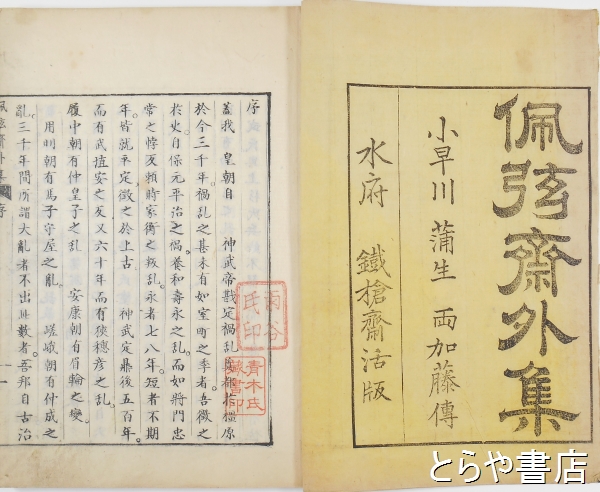 佩弦齋外集
小早川 蒲生 両加藤傳
水府 鐵槍齋活版
序
蓋我 皇朝自 神武帝戡定禍乱奠都於橿原
於今三千年禍乱之甚未有如室町之季者吾徴之
於史自保元平治之禍養和壽永之乱而如将門忠
常之悖反頼時家衡之叛乱永者七八年短者不期
年皆就平定徴之於上古 神武定鼎後五百年
而有武埴安之反又六十年而有狹穗彦之乱
履中朝有仲皇子之乱 安康朝有眉輪之變
用明朝有馬子守屋之亂 嵯峨朝有仲成之
亂三千年間所謂大亂者不出此數者吾邦自古治
佩弦齋外集 序
一
青木氏
藏書印
とらや書店